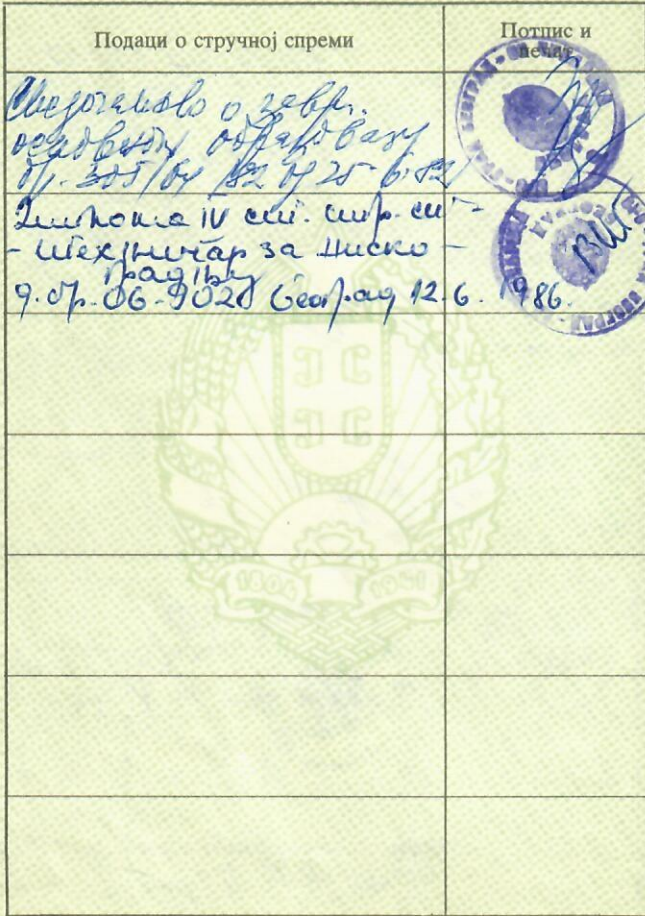 Подаци о стручној спреми
Потпис и
печат
Сведочанство о завр.
основном образовању
бр. 305/64 /82 од 25-6-82
Диплома IV ст. стр. сп -
- Техничар за ниско -
градњу
д. бр. 06-9020 Београд 12.6.1986.
1804 1941